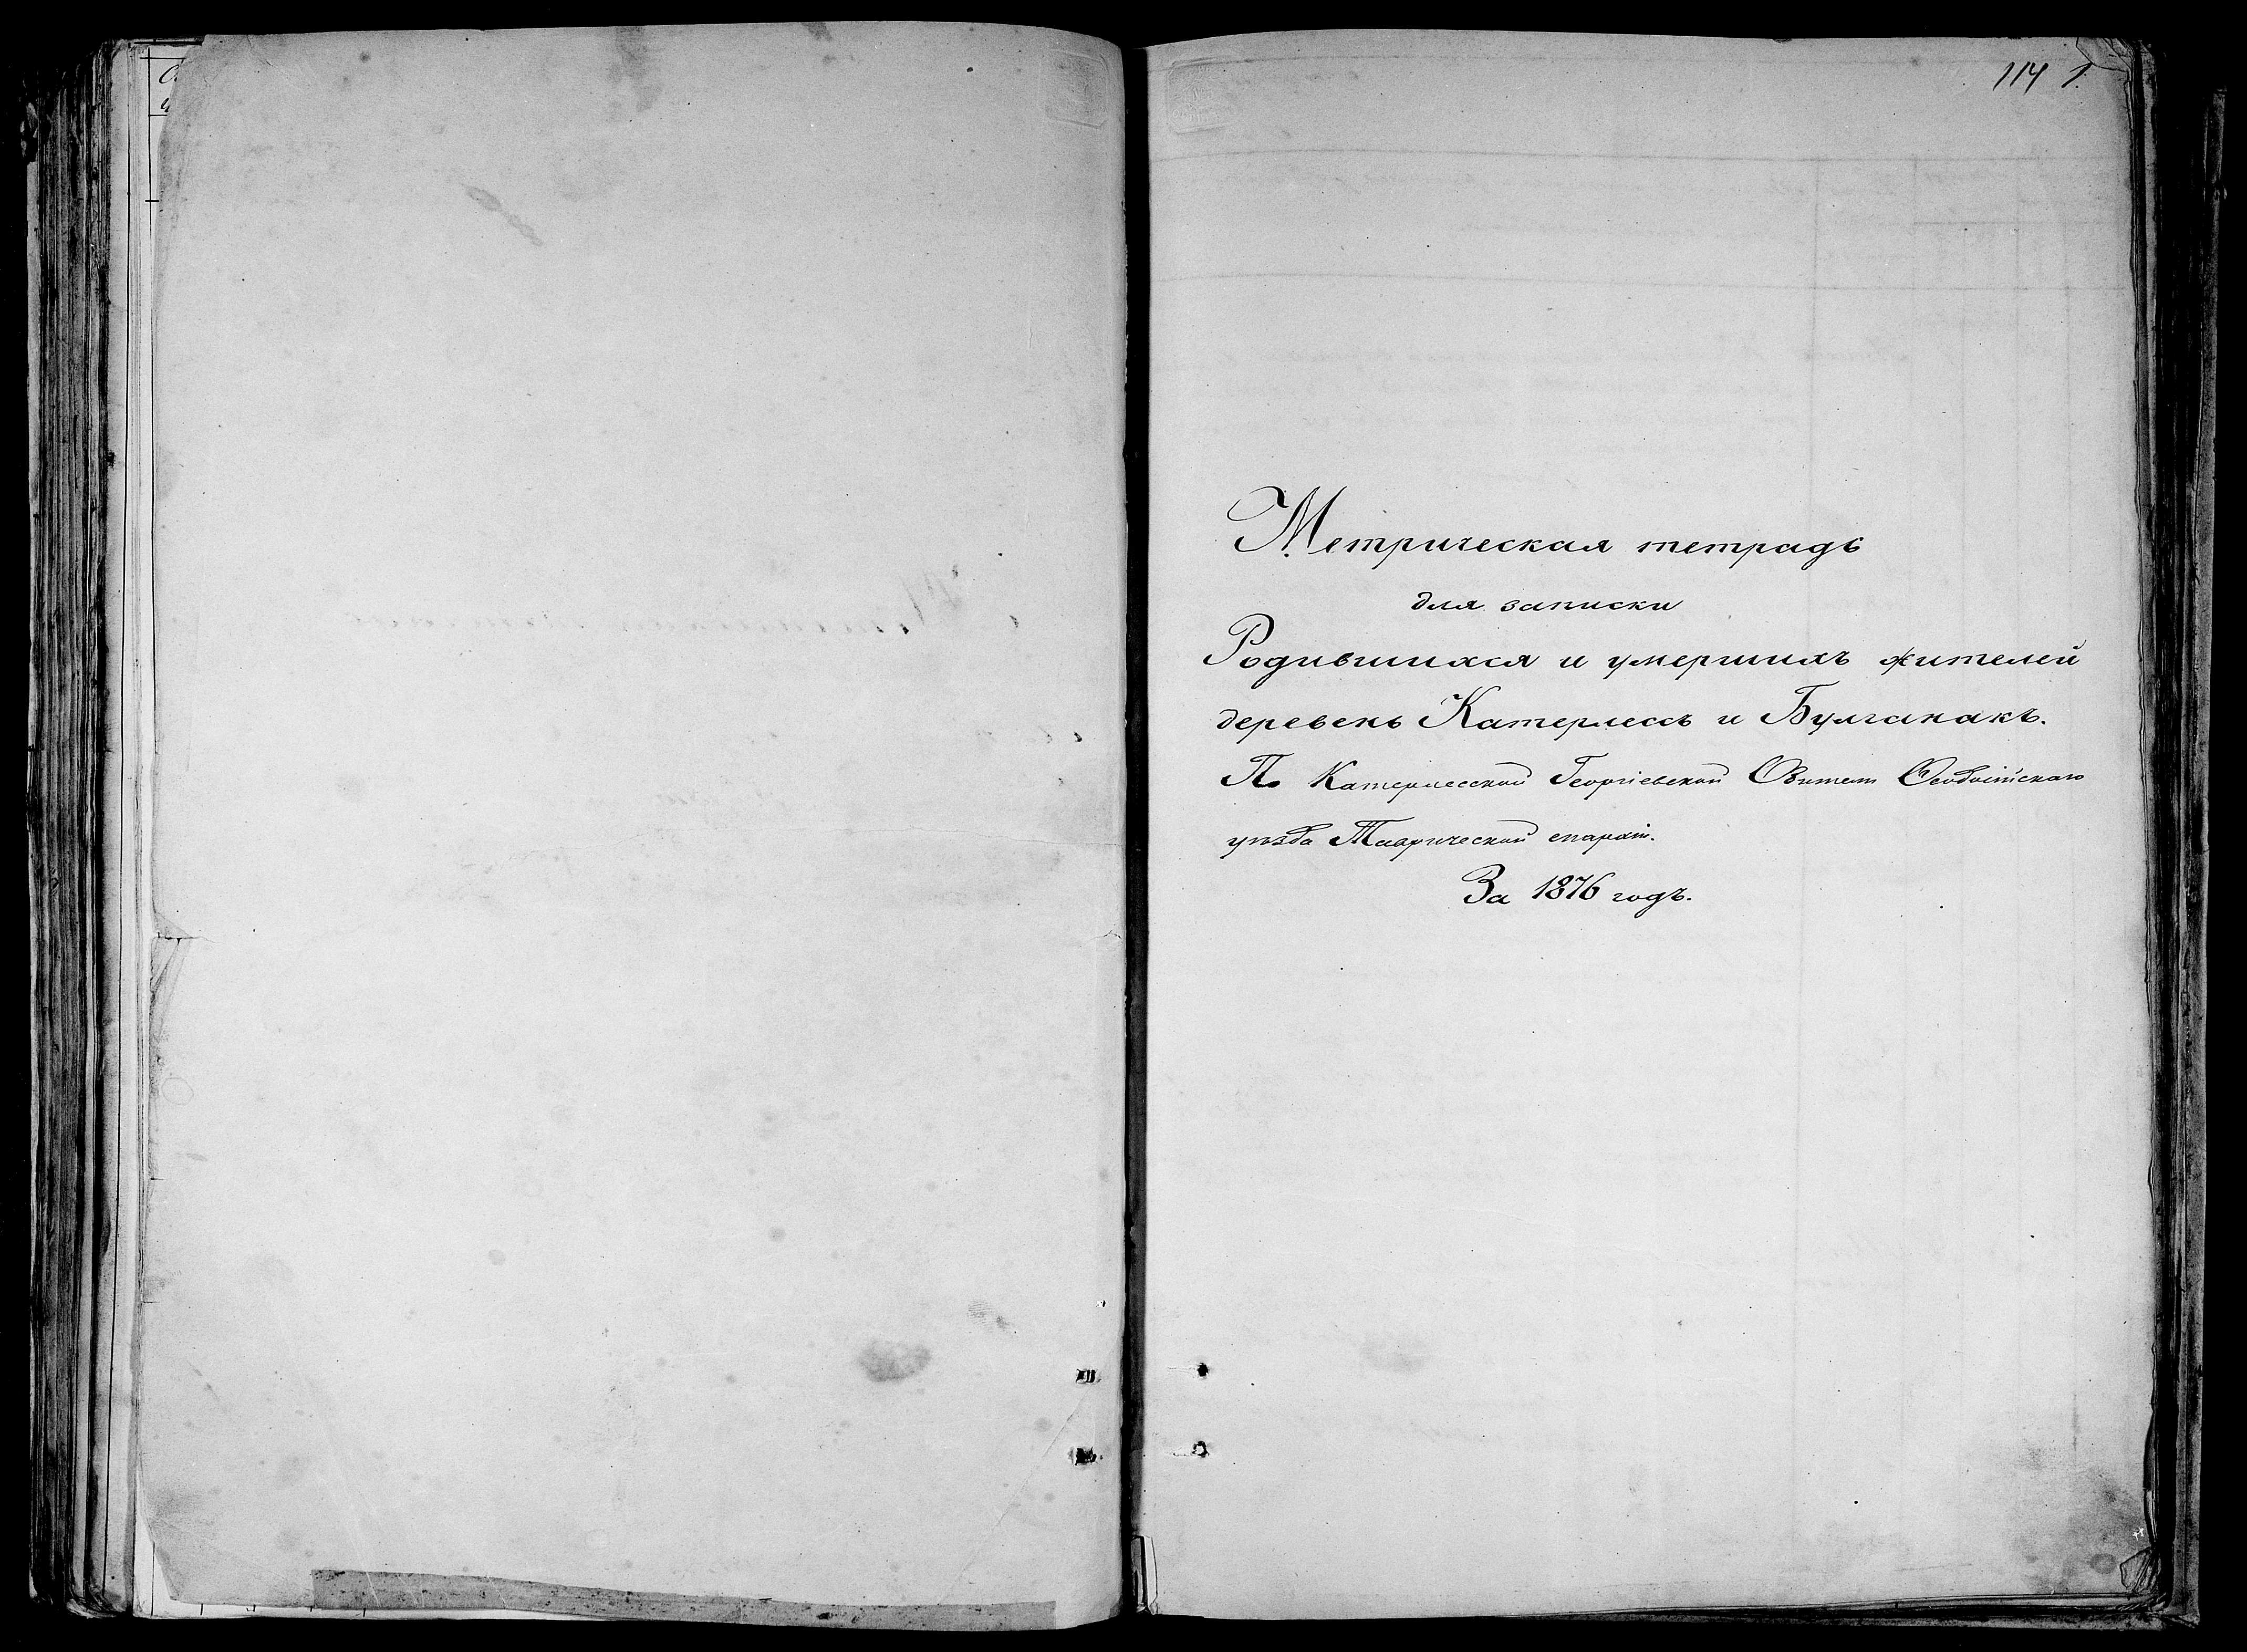 114 1.
Метрическая тетрадь
для записки
Родившихся и умершихъ жителей
деревень Катерлессъ и Булганакъ.
По Катерлесской Георгіевской Обители Ѳеодосійскаго
уѣзда Таврической епархіи.
За 1876 годъ.